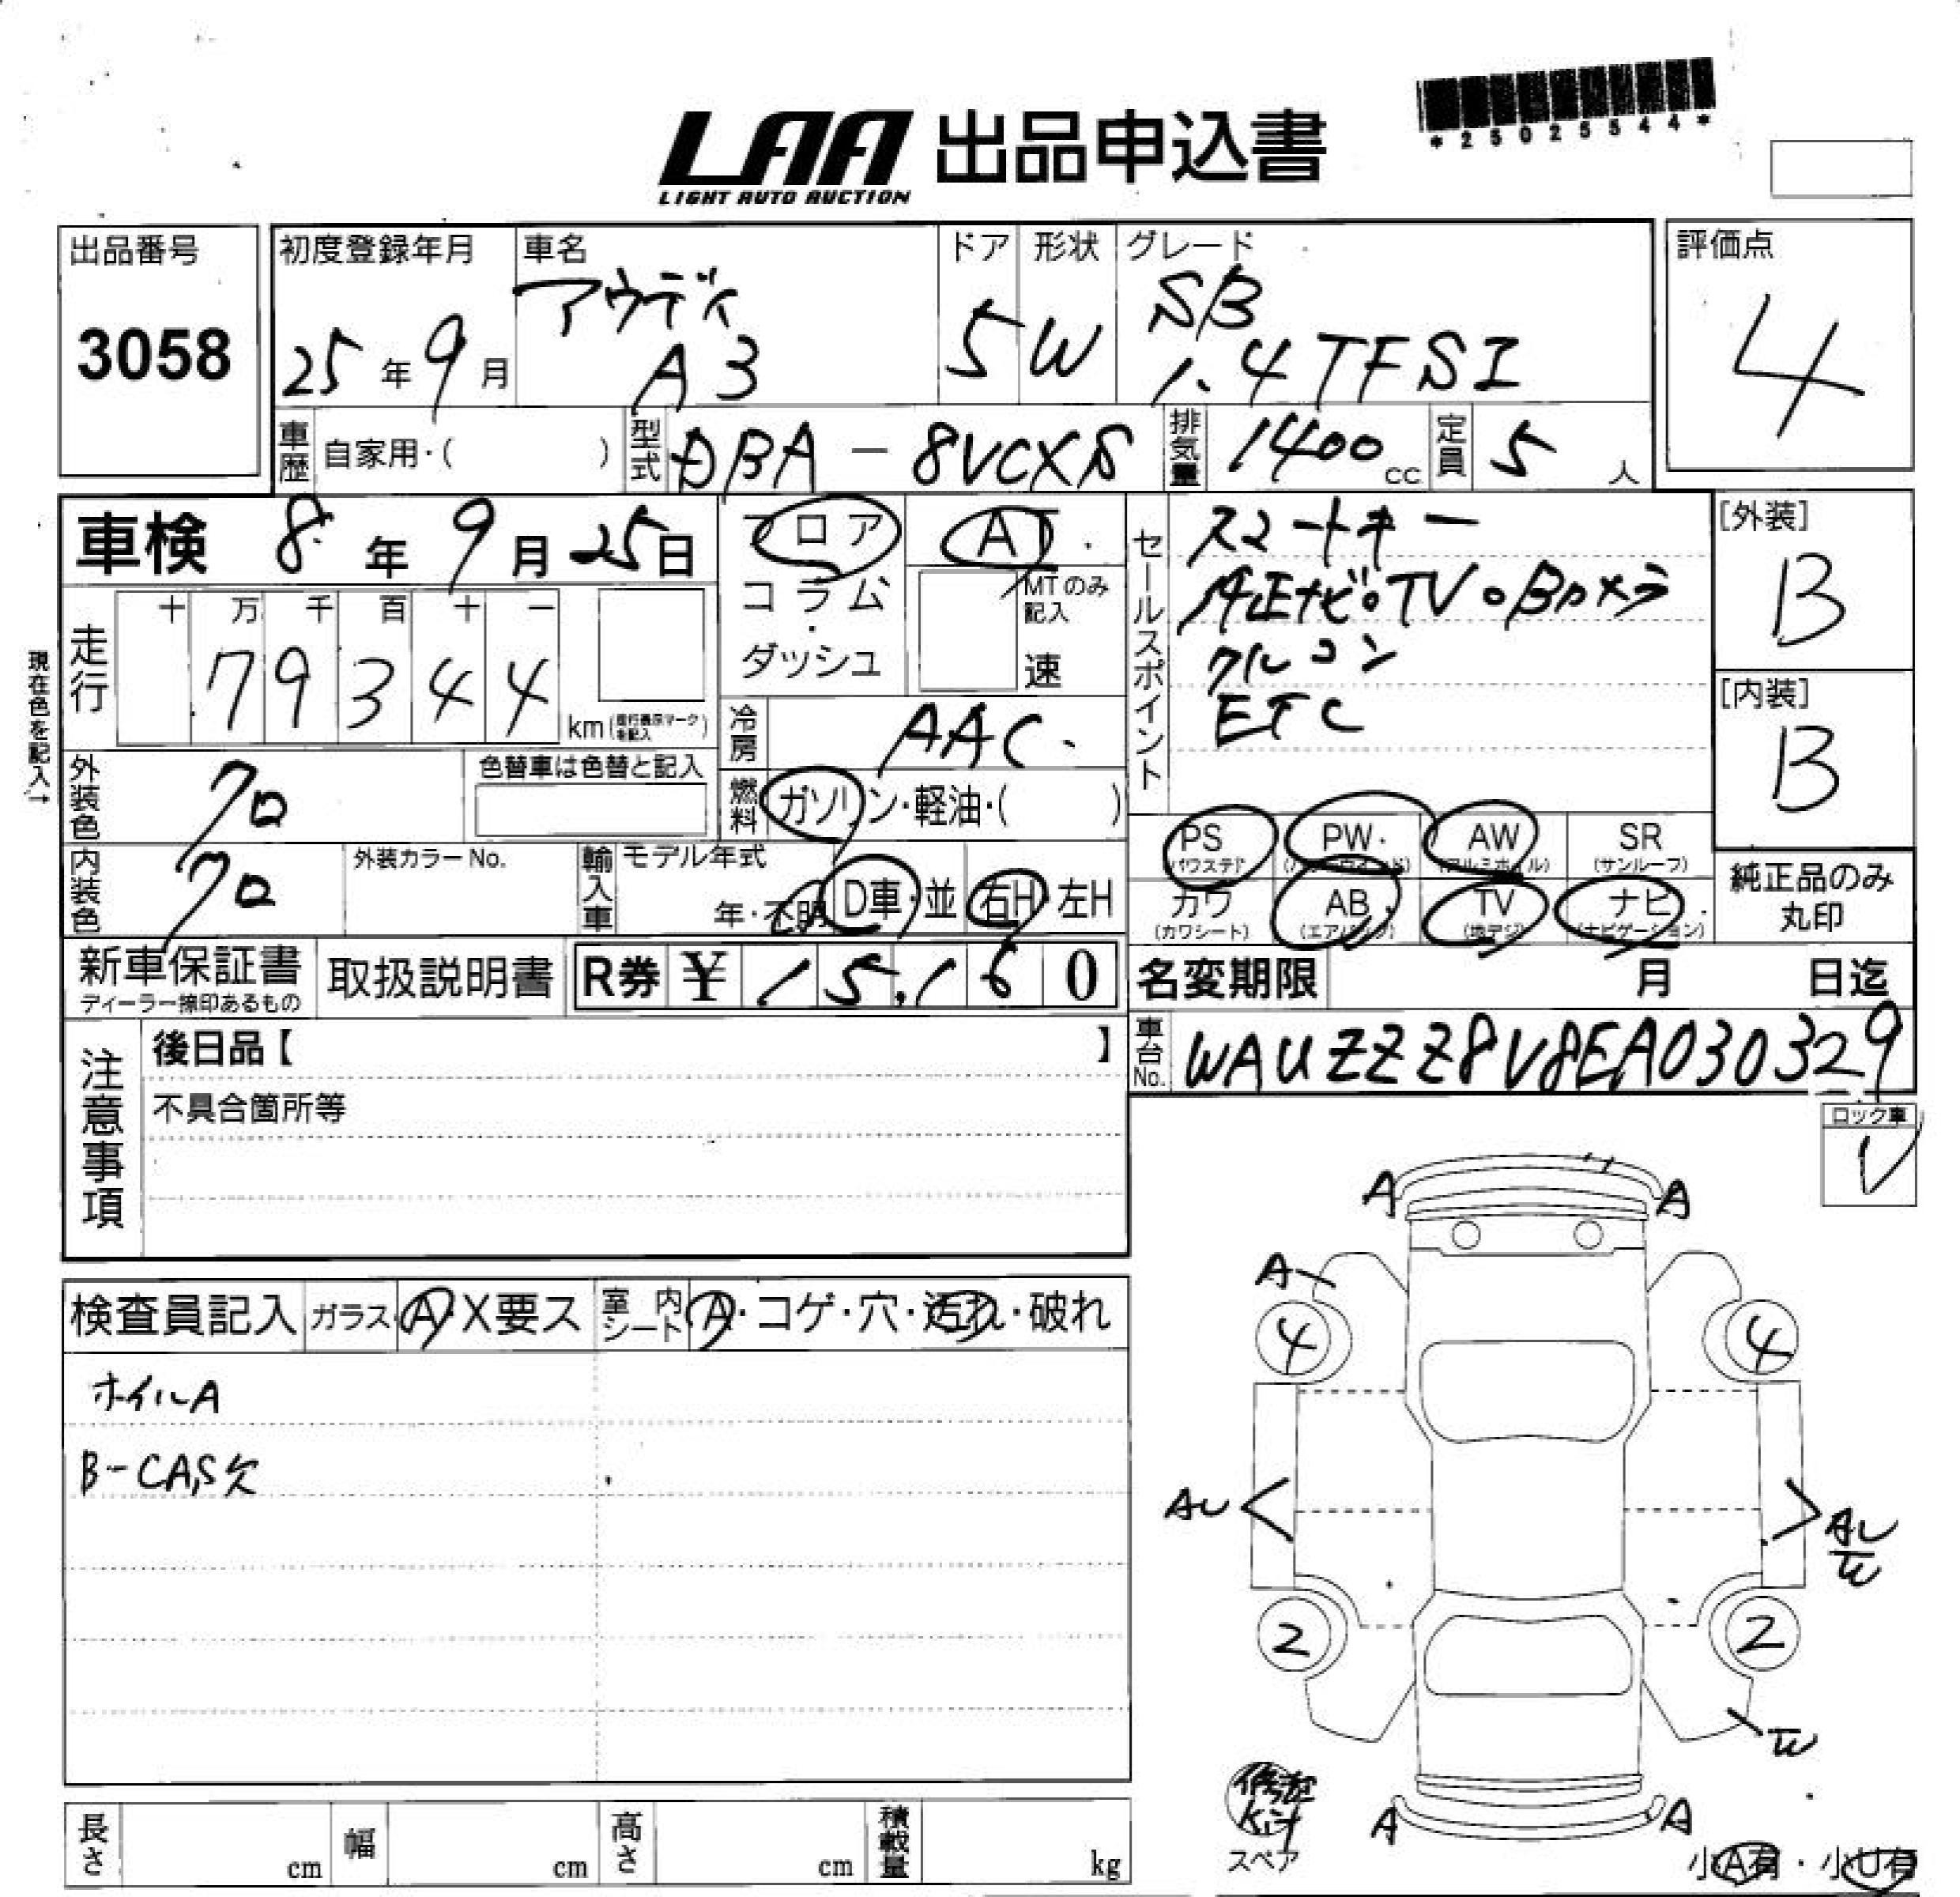 LAA 出品申込書
LIGHT AUTO AUCTION
*25025544*
出品番号
3058
初度登録年月
25年9月
車名
アウディ
A3
ドア
5
形状
W
グレード
SB
1.4TFSI
評価点
4
車歴 自家用・( )
型式 DBA-8VCXS
排気量 1400cc
定員 5人
車検 8年9月25日
フロア
コラム
ダッシュ
AT
MTのみ
記入
速
セールスポイント
スマートキー
純正ナビ。TV。Bカメラ
クルコン
ETC
[外装]
B
[内装]
B
現在色を記入→
走行
十 万 千 百 十 一
79344 km(走行表示マークを記入)
冷房 AAC
外装色 クロ
色替車は色替と記入
燃料 ガソリン・軽油・( )
内装色 クロ
外装カラーNo.
輸入車 モデル年式
年・不明 D車・並 右H・左H
PS
(パワステ)
PW
(パワーウインド)
AW
(アルミホイル)
SR
(サンルーフ)
カワ
(カワシート)
AB
(エアバック)
TV
(地デジ)
ナビ
(ナビゲーション)
純正品のみ
丸印
新車保証書
ディーラー捺印あるもの
取扱説明書
R券 ¥ 15,160
名変期限 月 日迄
車台No. WAUZZZ8V8EA030329
注意事項
後日品【 】
不具合箇所等
ロック車
レ
検査員記入 ガラス A・X要ス 室内シート A・コゲ・穴・汚れ・破れ
ホイルA
B-CAS欠
A A
A
4 4
AU AU
W
2 2
W
修理
Kit
スペア
A A
小A有・小U有
長さ cm 幅 cm 高さ cm 積載量 kg